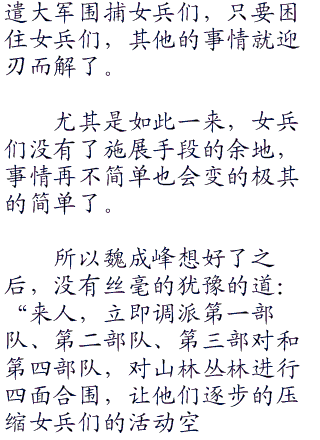 遣大军围捕女兵们，只要困
住女兵们，其他的事情就迎
刃而解了。
尤其是如此一来，女兵
们没有了施展手段的余地，
事情再不简单也会变的极其
的简单了。
所以魏成峰想好了之
后，没有丝毫的犹豫的道：
“来人，立即调派第一部
队、第二部队、第三部对和
第四部队，对山林丛林进行
四面合围，让他们逐步的压
缩女兵们的活动空